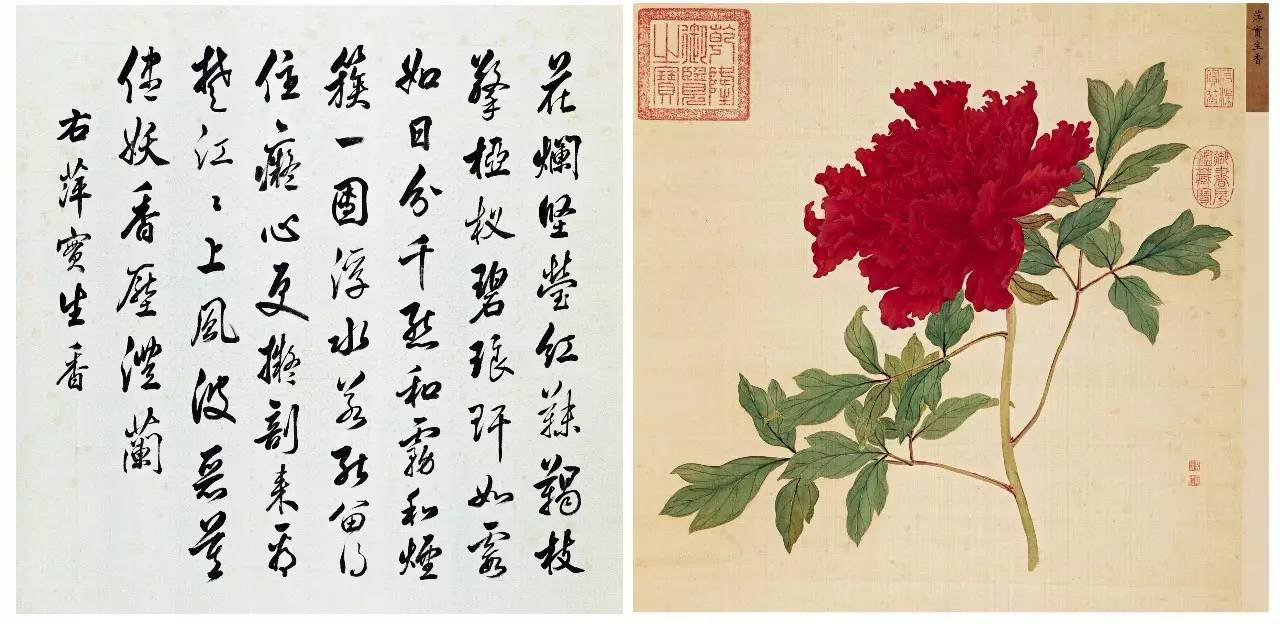 花爛堅瑩紅靺鞨枝
擎椏杈碧琅玕如霞
如日分千點和霧和煙
簇一團浮水若能留得
住癡心更擬剖來看
楚江〻上風波惡莫
儘妖香壓澧蘭
右萍實生香
萍實生香
乾隆御覽之寶
御書屋鑑藏寶